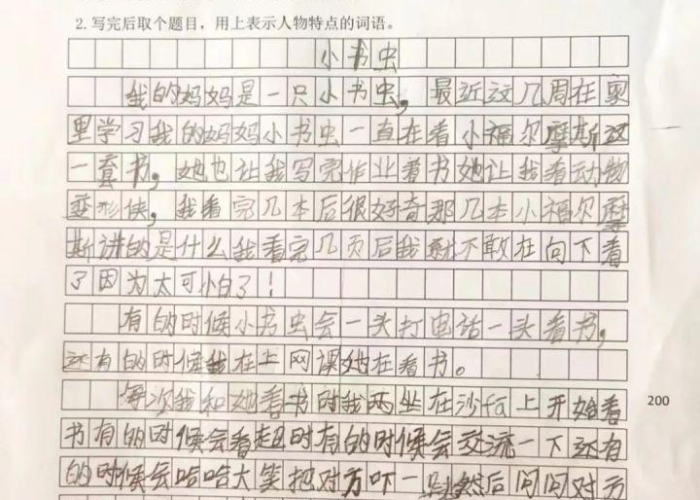 2. 写完后取个题目，用上表示人物特点的词语。
小书虫
我的妈妈是一只小书虫，最近这几周在家
里学习我的妈妈小书虫一直在看小福尔摩斯这
一套书，她也让我写完作业看书她让我看动物
变形侠，我看完几本后很好奇那几本小福尔摩
斯讲的是什么我看完几页后我就不敢在向下看
了因为太可怕了！
有的时候小书虫会一头打电话一头看书，
还有的时候我在上网课她在看书。
每次我和她看书时我两坐在沙fa上开始看
200
书有的时候会看超时有的时候会交流一下还有
的时候会哈哈大笑把对方吓一跳然后问问对方